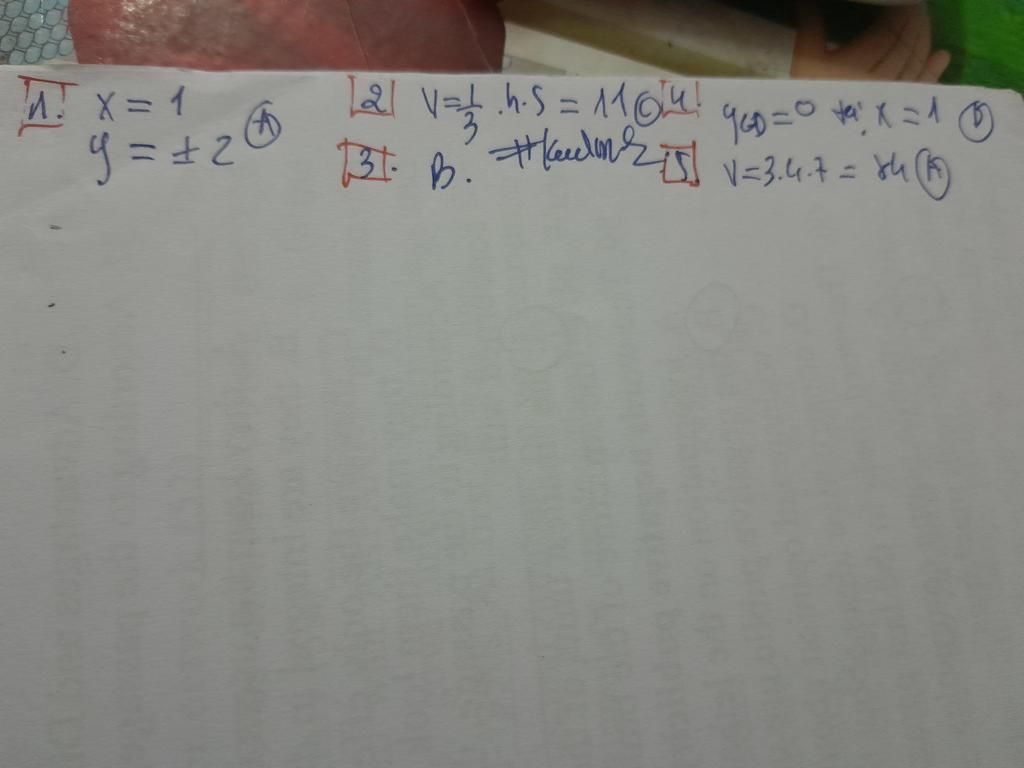 1. x = 1
y = ± 2 A
2 V = 1/3 . h . S = 11
3. B.
4. yCD = 0 tại x = 1 D
5 V = 3.4.7 = 84 A